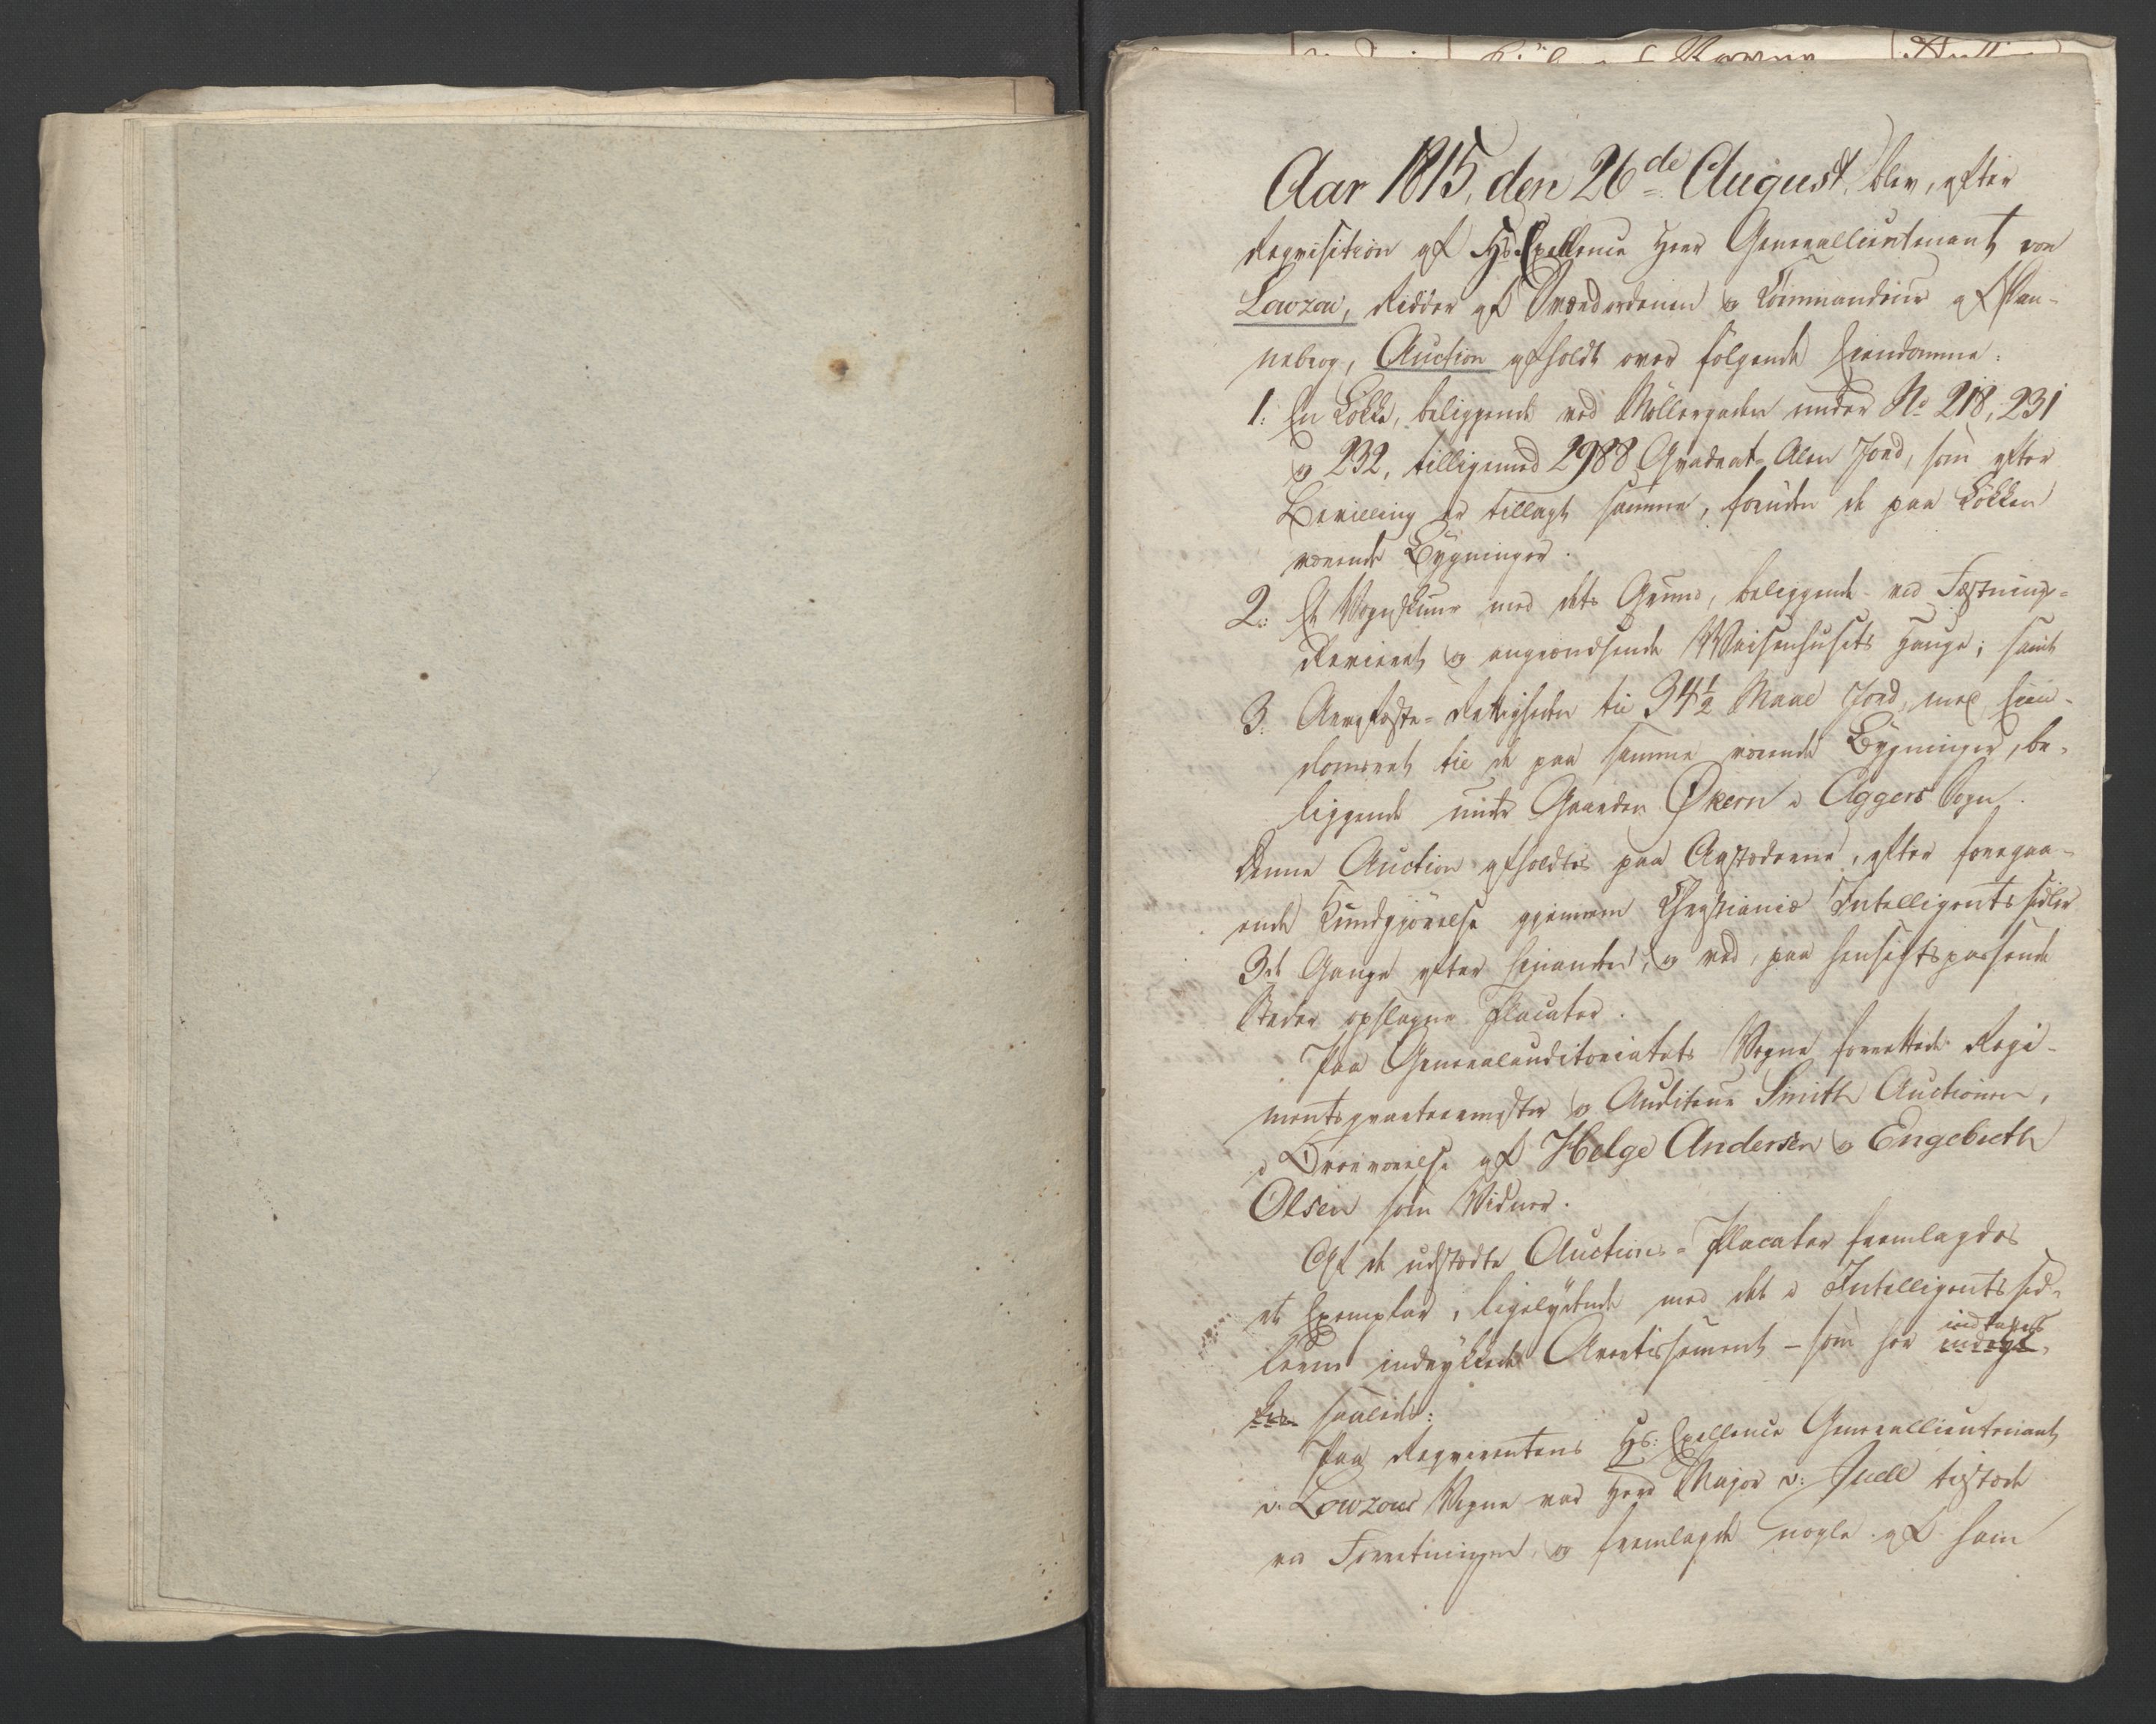 Aar 1815, den 26de August, blev, efter
Requisition af Hs. Exellence Herr Generallieutenant von
Lowzow, Ridder af Sværdordenen og Commandeur af Dan-
nebrog, Auction afholdt over følgende Eiendomme:
1. En Løkke, beliggende ved Møllergaden under No 218, 231
og 232, tilligemed 2988 Qvadrat-Alen Jord, som efter
Bevilling er tillagt samme, foruden de paa Løkken
værende Bygninger.
2. Et Vognskuur med dets Grund, beliggende ved Fæstnings-
Revieret og angrændsende Waisenhusets Hauge; samt
3. Arvefæste-Rettigheden til 34½ Maal Jord, med Eien-
domsret til de paa samme værende Bygninger, be-
liggende under Gaarden Økern i Aggers Sogn.
Denne Auction afholdtes paa Aastæderne, efter foregaa-
ende Kundgjørelse gjennem Christiania Intelligentssedler
3de Gange efter hinanden, og ved, paa hensigtspassende
Steder opslagne Placater.
Paa Generalauditoriatets Vegne forrettede Regi-
mentsqvarteermester og Auditeur Smith Auctionen,
i Overværelse af Helge Andersen og Engebreth
Olsen som Vidner.
Af de udstædte Auctions-Placater fremlagdes
et Exemplar, ligelydende med det i Intelligentssed-
lerne indrykkede Avertissement – som her indtages
saaledes:
Paa Reqvirentens Hs: Exellence Generallieutenant
v. Lowzows Vegne var Herr Major v. Juell tilstæde
ved Forretningen, og fremlagde nogle af ham